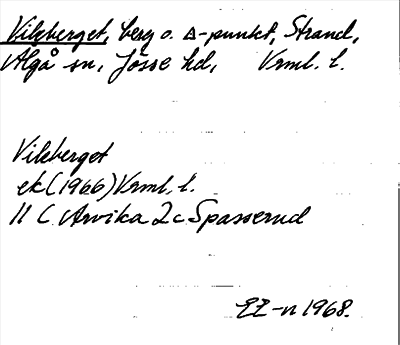 Vikberget, berg o. Δ-punkt, Strand,
Älgå sn, Jösse hd, Vrml. l.
Vikberget
ek (1966) Vrml. l.
11 C Arvika 2c Spasserud
EZ-n 1968.